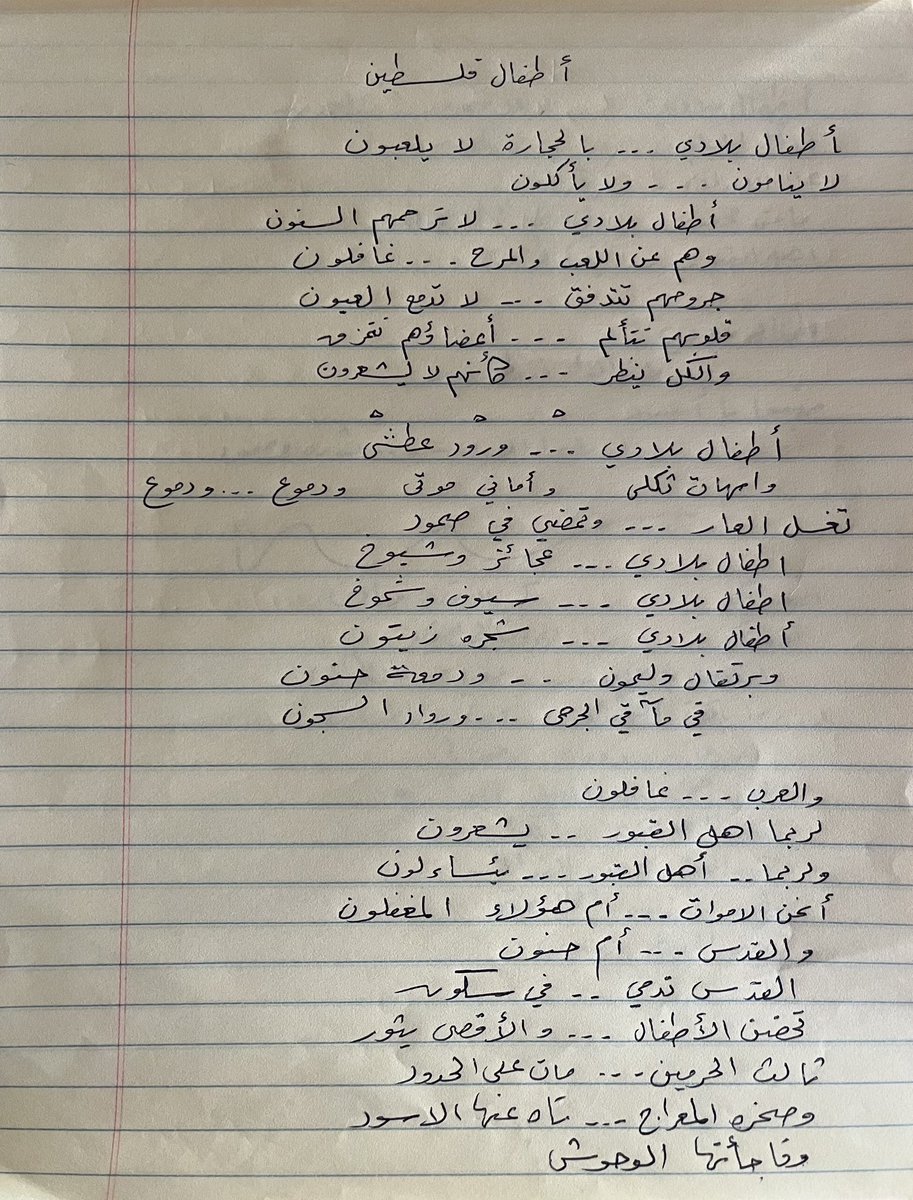 أطفال فلسطين
أطفال بلادي --- بالحجارة لا يلعبون
لا ينامون --- ولا يأكلون
أطفال بلادي --- لا ترحمهم السنون
وهم عن اللعب والمرح --- غافلون
جروحهم تتدفق --- لا تدمع العيون
قلوبهم تتألم --- أعضاؤهم تتمزق
والكل ينظر --- كأنهم لا يشعرون
أطفال بلادي --- ورود عطشى
وامهات ثكلى وأماني موتى ودموع --- ودموع
تغسل العار --- وتمضي في صمود
اطفال بلادي --- عجائز وشيوخ
اطفال بلادي --- سيوف وشموخ
أطفال بلادي --- شجره زيتون
وبرتقال وليمون -- ودمعة حنون
في مآقي الجرحى --- وزوار السجون
والعرب --- غافلون
لربما اهل القبور -- يشعرون
ولربما -- أهل القبور --- يتساءلون
أنحن الاموات --- أم هؤلاء المغفلون
والقدس --- أم حنون
القدس تدمي -- في سكون
تحضن الأطفال --- والأقصى يثور
ثالث الحرمين --- مات على الحدود
وصخره المعراج --- تاه عنها الاسود
وفاجأتها الوحوش